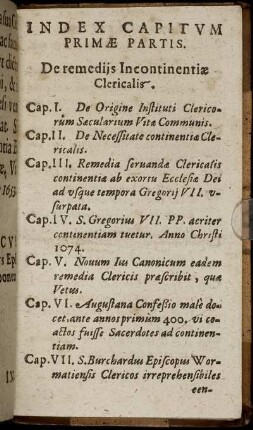 INDEX CAPITVM
PRIMÆ PARTIS.
De remedijs Incontinentiæ
Clericalis.
Cap. I. De Origine Instituti Clerico-
rum Sæcularium Vitæ Communis.
Cap. II. De Necessitate continentiæ Cle-
ricalis.
Cap. III. Remedia seruandæ Clericalis
continentiæ ab exortu Ecclesiæ Dei
ad vsque tempora Gregorij VII. v-
surpata.
Cap. IV. S. Gregorius VII. PP. acriter
continentiam tuetur. Anno Christi
1074.
Cap. V. Nouum Ius Canonicum eadem
remedia Clericis præscribit, quæ
Vetus.
Cap. VI. Augustana Confessio male do-
cet, ante annos primùm 400. vi co-
actos fuisse Sacerdotes ad continen-
tiam.
Cap. VII. S. Burchardus Episcopus Wor-
matiensis Clericos irreprehensibiles
een-